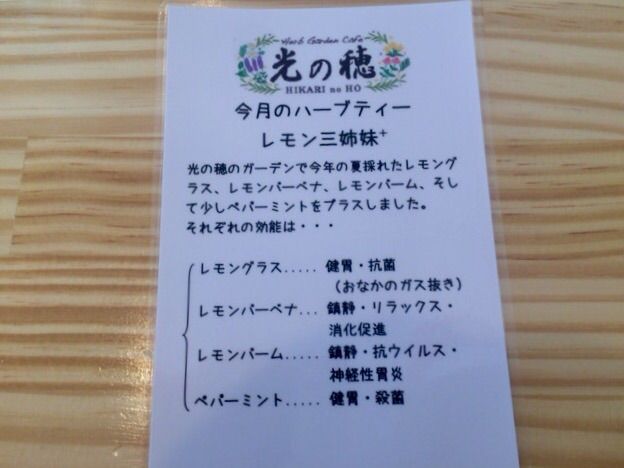 Herb Garden Cafe
光の穂
HIKARI no HO
今月のハーブティー
レモン三姉妹+
光の穂のガーデンで今年の夏採れたレモング
ラス、レモンバーベナ、レモンバーム、そし
て少しペパーミントをプラスしました。
それぞれの効能は・・・
レモングラス..... 健胃・抗菌
(おなかのガス抜き)
レモンバーベナ... 鎮静・リラックス・
消化促進
レモンバーム..... 鎮静・抗ウイルス・
神経性胃炎
ペパーミント..... 健胃・殺菌